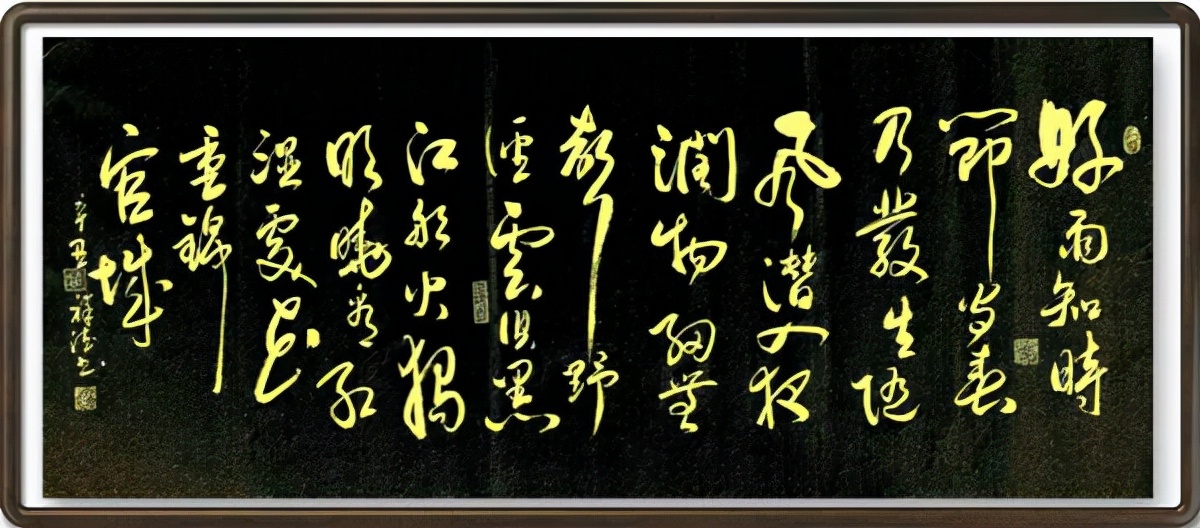 好雨知時
節当春
乃發生随
風潜入夜
潤物細無
聲野
徑雲俱黑
江船火獨
明曉看红
濕處花
重錦
官城
辛丑祥书